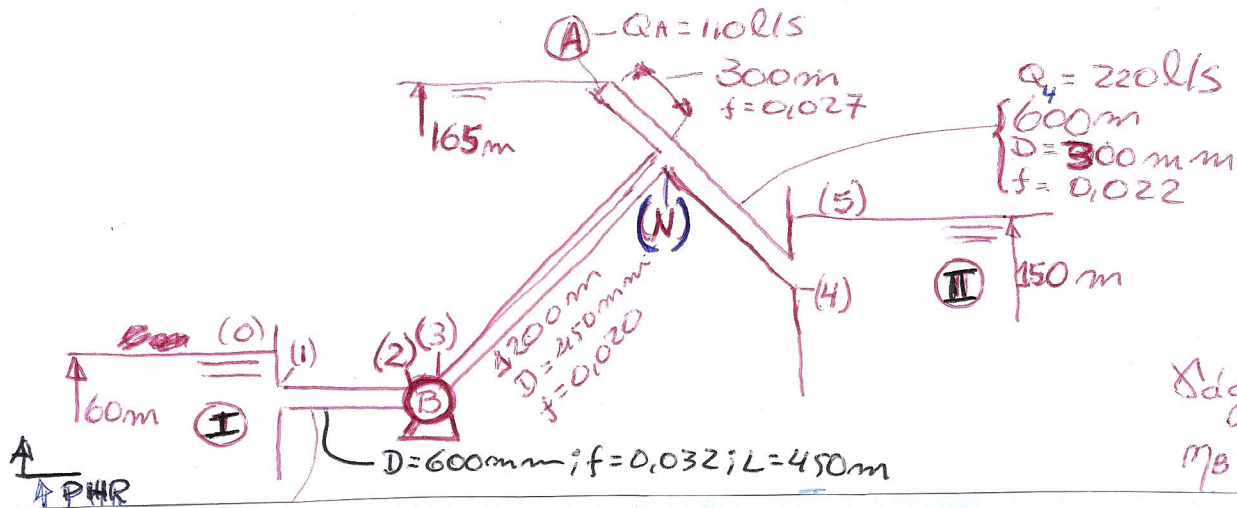 A - QA = 110 l/s
300m
f = 0,027
165m
Q4 = 220 l/s
600m
D = 300mm
f = 0,022
(N)
(5)
(4)
II
150m
1200m
D = 450mm
f = 0,020
(0)
(1)
(2)
(3)
B
60m
I
D = 600mm; f = 0,032; L = 450m
PHR
ηB